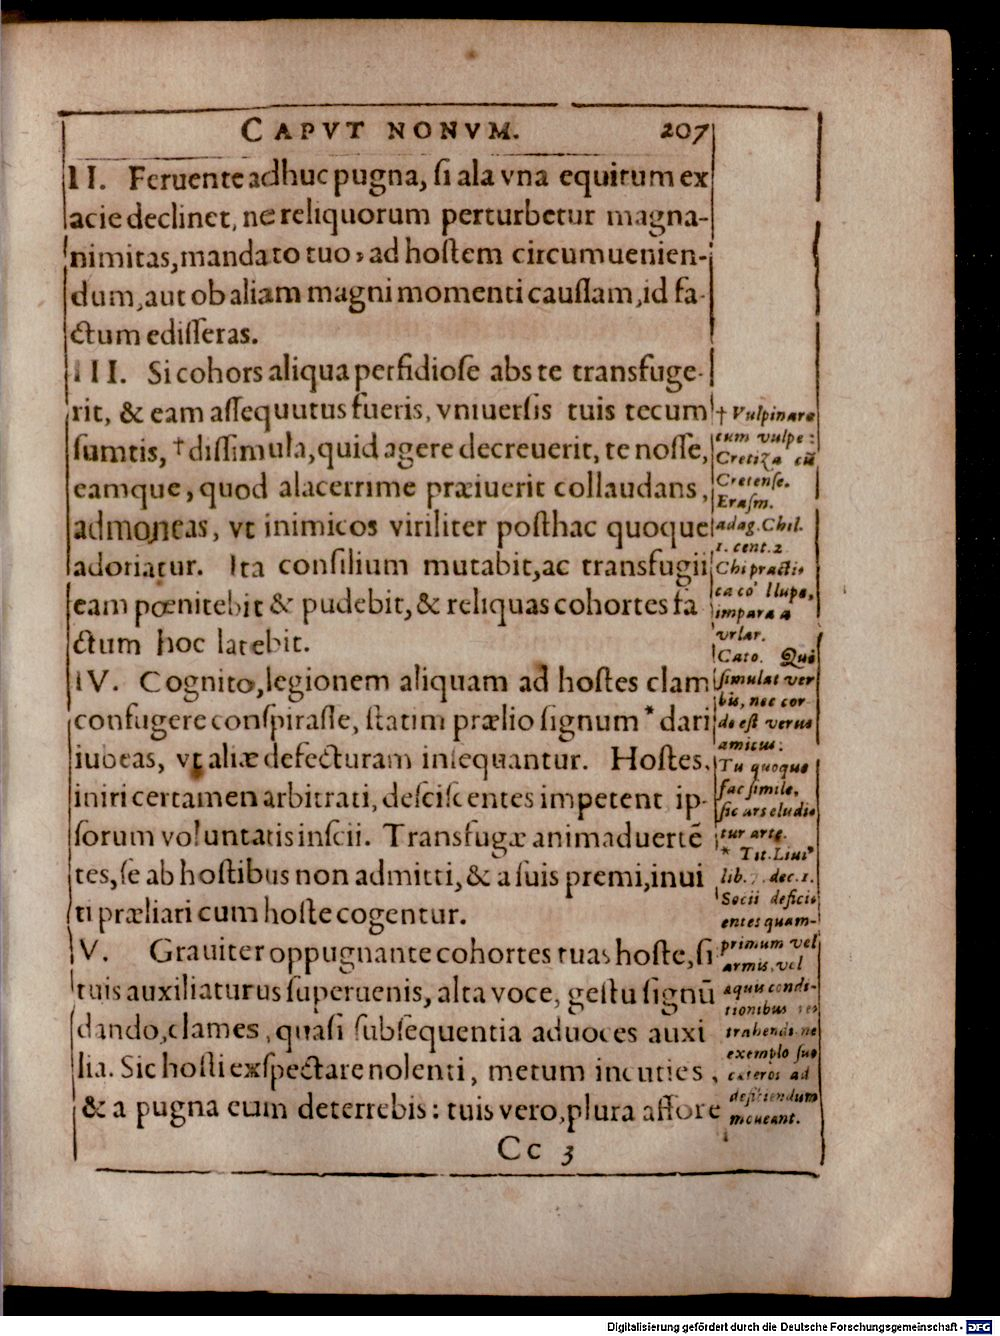 CAPVT NONVM. 207
II. Feruente adhuc pugna, si ala vna equitum ex
acie declinet, ne reliquorum perturbetur magna-
nimitas, mandato tuo, ad hostem circumuenien-
dum, aut ob aliam magni momenti caussam, id fa-
ctum edisseras.
III. Si cohors aliqua perfidiose abs te transfuge-
rit, & eam assequutus fueris, vniuersis tuis tecum
sumtis, † dissimula, quid agere decreuerit, te nosse,
eamque, quod alacerrime præiuerit collaudans,
admoneas, vt inimicos viriliter posthac quoque
adoriatur. Ita consilium mutabit, ac transfugii
eam pœnitebit & pudebit, & reliquas cohortes fa
ctum hoc latebit.
IV. Cognito, legionem aliquam ad hostes clam
confugere conspirasse, statim prælio signum * dari
iubeas, vt aliæ defecturam insequantur. Hostes,
iniri certamen arbitrati, desciscentes impetent ip-
sorum voluntatis inscii. Transfugæ animaduertẽ
tes, se ab hostibus non admitti, & a suis premi, inui
ti præliari cum hoste cogentur.
V. Grauiter oppugnante cohortes tuas hoste, si
tuis auxiliaturus superuenis, alta voce, gestu signũ
dando, clames, quasi subsequentia aduoces auxi
lia. Sic hosti exspectare nolenti, metum incuties,
& a pugna eum deterrebis: tuis vero, plura affore
Cc 3
† Vulpinare
cum vulpe:
Cretiza cũ
Cretense.
Erasm.
adag. Chil.
1. cent. 2
Chi practi-
ca co' llupo,
impara a
vrlar.
Cato. Qui
simulat ver
bis, nec cor
de est verus
amicus:
Tu quoque
fac simile,
sic ars eludi-
tur arte.
* Tit. Liui'
lib. 7. dec. 1.
Socii defici-
entes quam-
primum vel
armis, vel
aquis condi-
tionibus
trahendi ne
exemplo suo
cæteros ad
deficiendum
moueant.
Digitalisierung gefördert durch die Deutsche Forschungsgemeinschaft - DFG